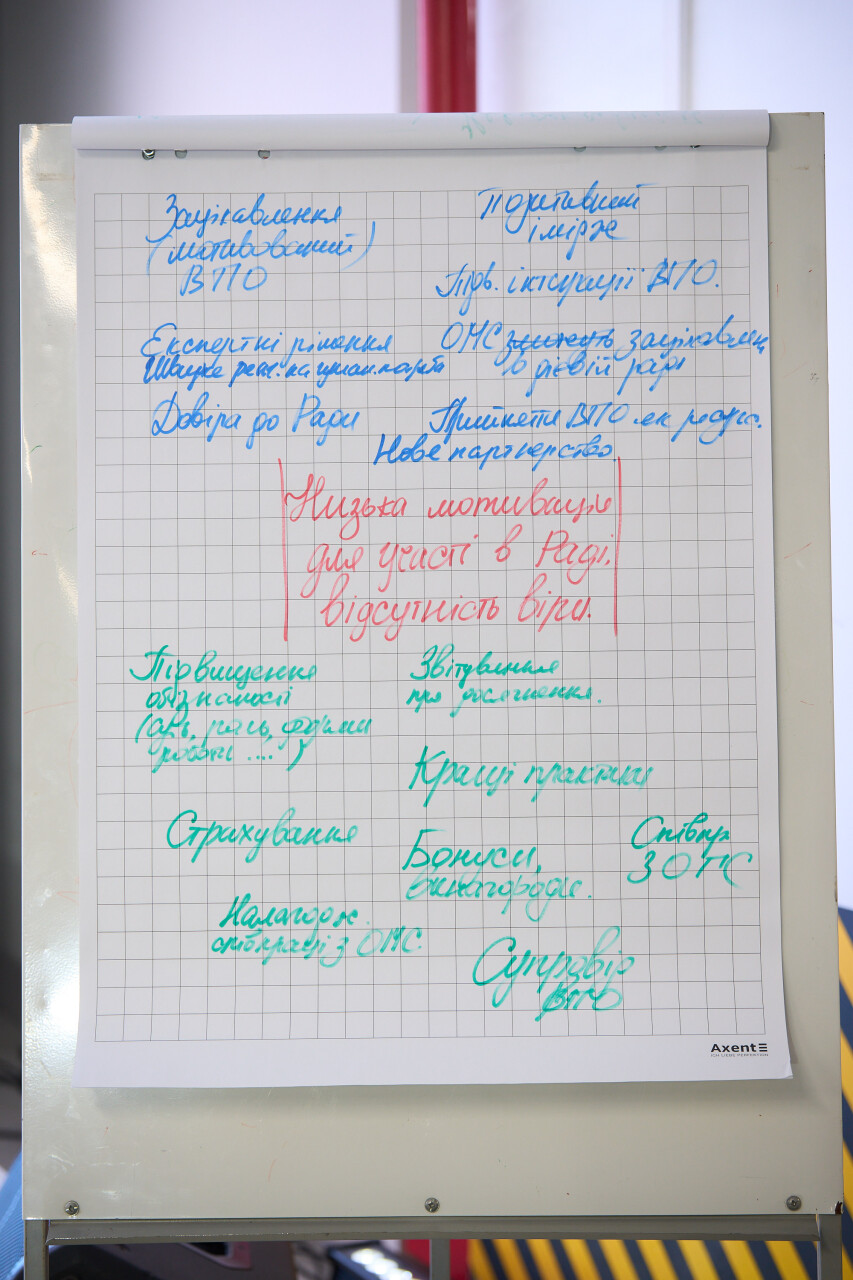 Зацікавлення
(мотивований)
ВПО
Позитивний
імідж
Підв. інтеграції ВПО.
Експертні рішення
Швидке реаг. на гуман. потреб
ОМС зацікавлен
в дієвій раді
Довіра до Ради
Прийняти ВПО як ресурс.
Нове партнерство.
Низька мотивація
для участі в Раді,
відсутність віри.
Підвищення
обізнаності
роботи ....)
Звітування
про досягнення.
Кращі практики
Страхування
Бонуси,
винагороди.
Співпр
З ОТС
Налагодж.
співпраці з ОМС.
Супровід
ВПО
Axent
ICH LIEBE PERFEKTION